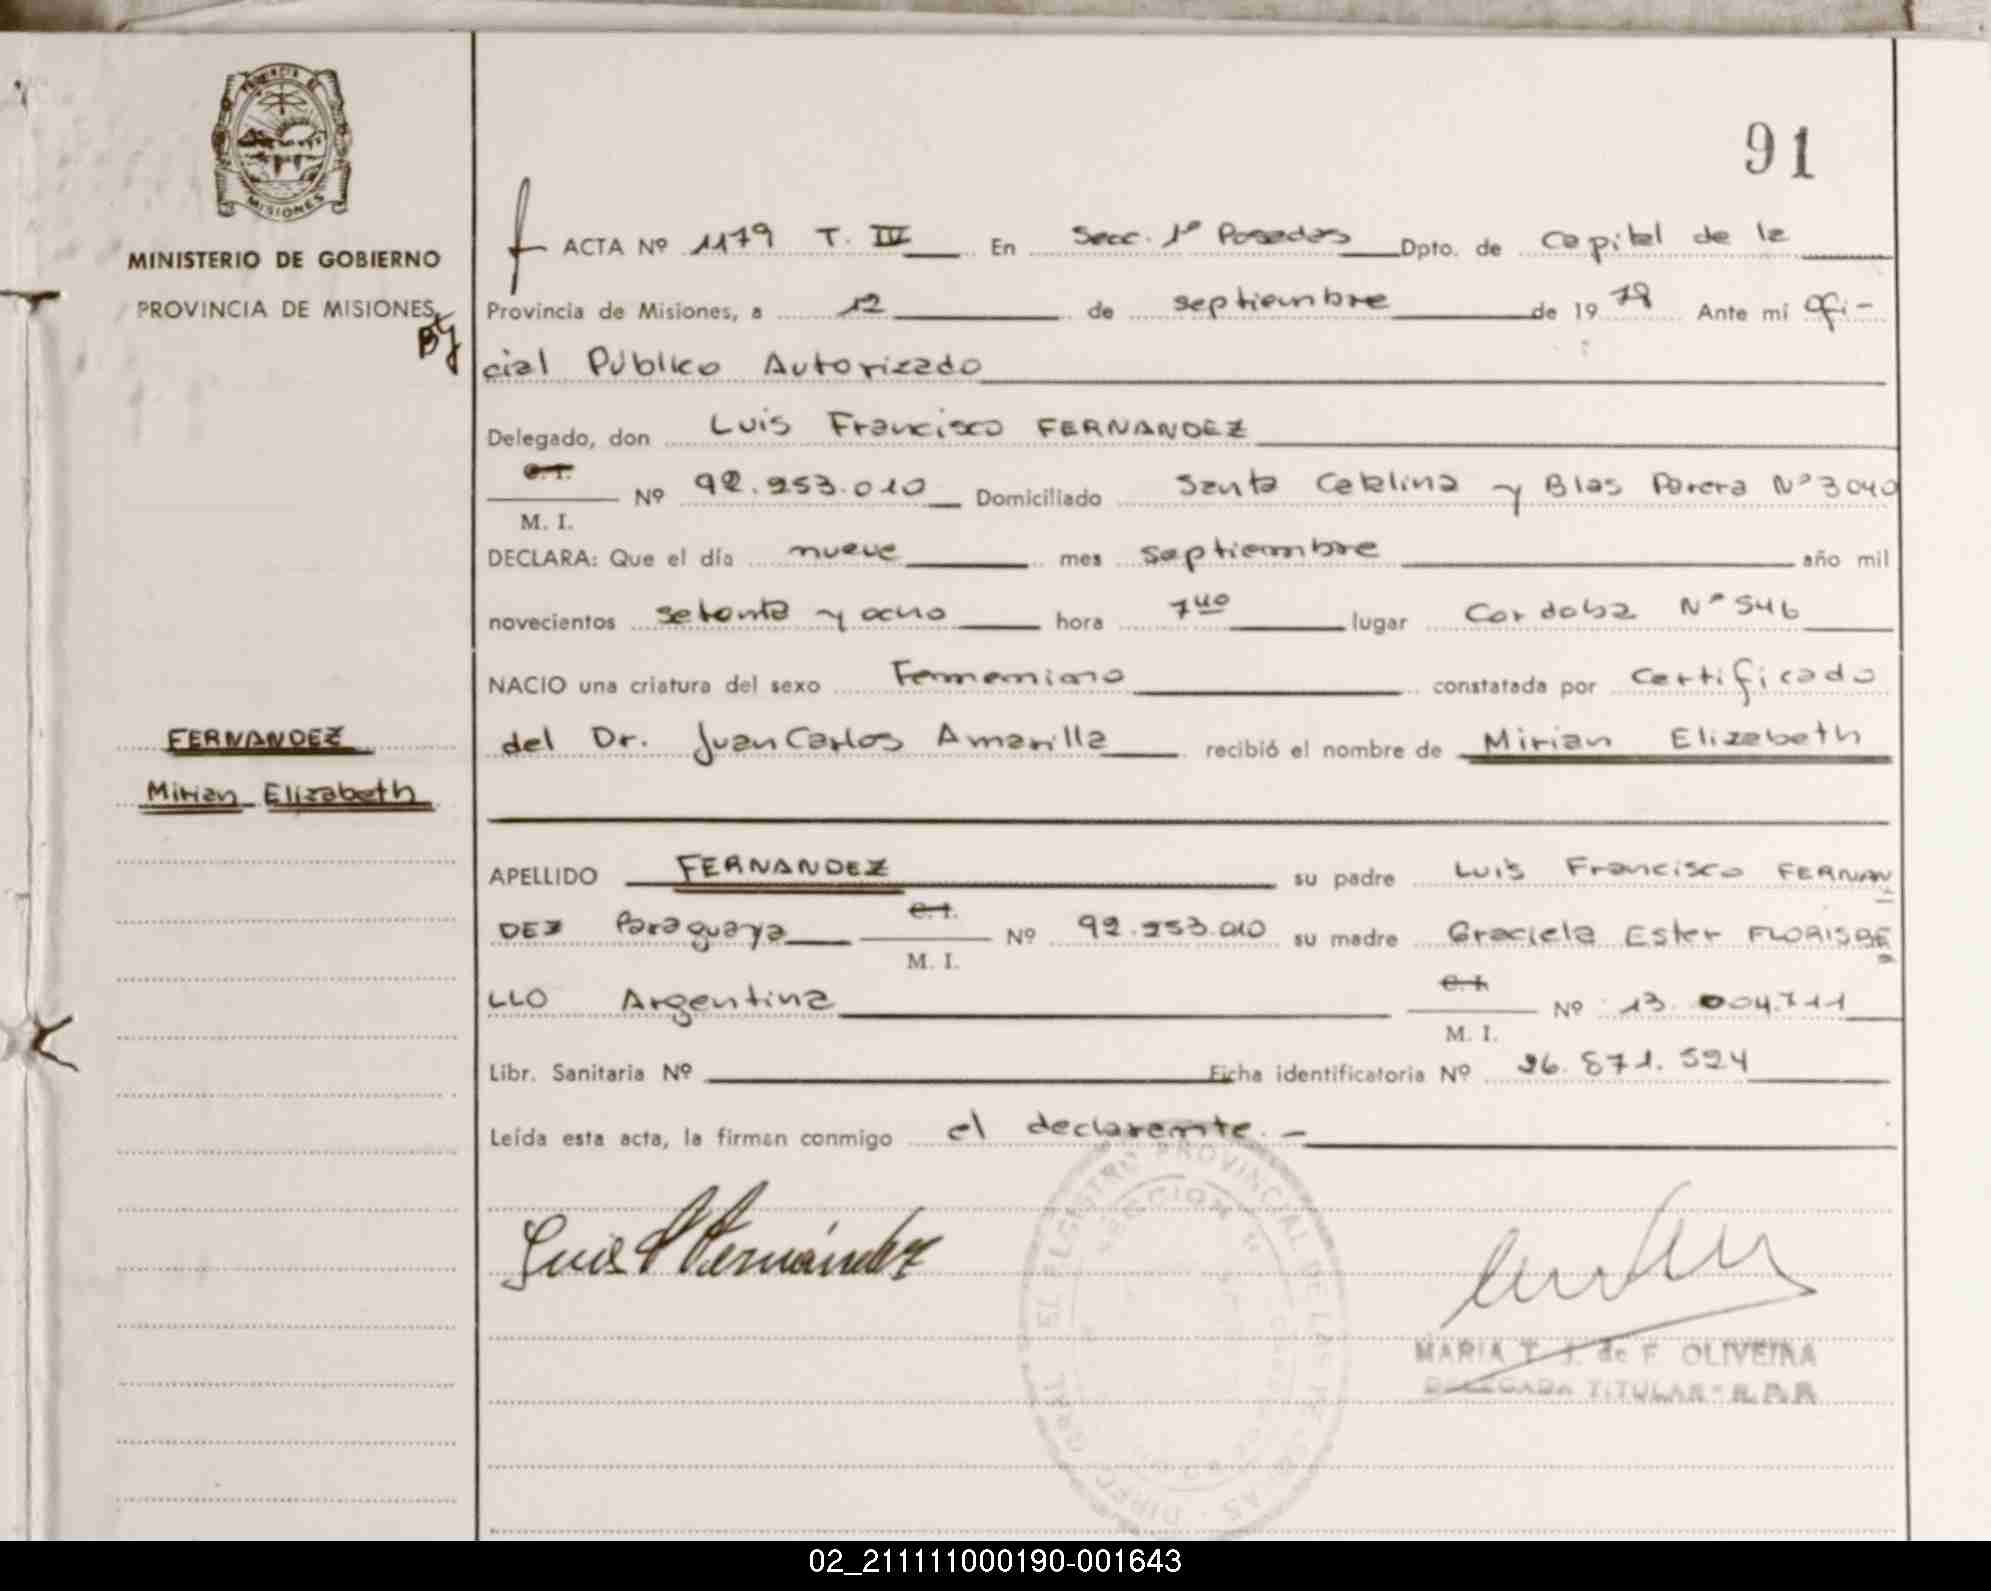 PROVINCIA DE
MISIONES
MINISTERIO DE GOBIERNO
PROVINCIA DE MISIONES
91
ACTA Nº 1179 T. IV En Secc. 1ª Posadas Dpto. de Capital de la
Provincia de Misiones, a 12 de septiembre de 19 78 Ante mí Ofi-
cial Público Autorizado
Delegado, don Luis Francisco FERNANDEZ
C.I.
Nº 92.253.010 Domiciliado Santa Catalina y Blas Parera Nº 3040
M. I.
DECLARA: Que el día nueve mes septiembre año mil
novecientos setenta y ocho hora 7 40 lugar Cordoba Nº 546
NACIO una criatura del sexo Femenino constatada por Certificado
FERNANDEZ
del Dr. Juan Carlos Amarilla recibió el nombre de Mirian Elizabeth
Mirian Elizabeth
APELLIDO FERNANDEZ su padre Luis Francisco FERNAN
C.I.
DEZ Paraguaya Nº 92.253.010 su madre Graciela Ester FLORISBE
M. I.
C.I.
LLO Argentina Nº 13.004.711
M. I.
Libr. Sanitaria Nº Ficha identificatoria Nº 26.871.524
Leída esta acta, la firman conmigo el declarante. -
Luis F Fernández
REGISTRO PROVINCIAL DE LAS
SECCION
MARIA T. J. de F. OLIVEIRA
DELEGADA TITULAR - R.P.P.
02_211111000190-001643